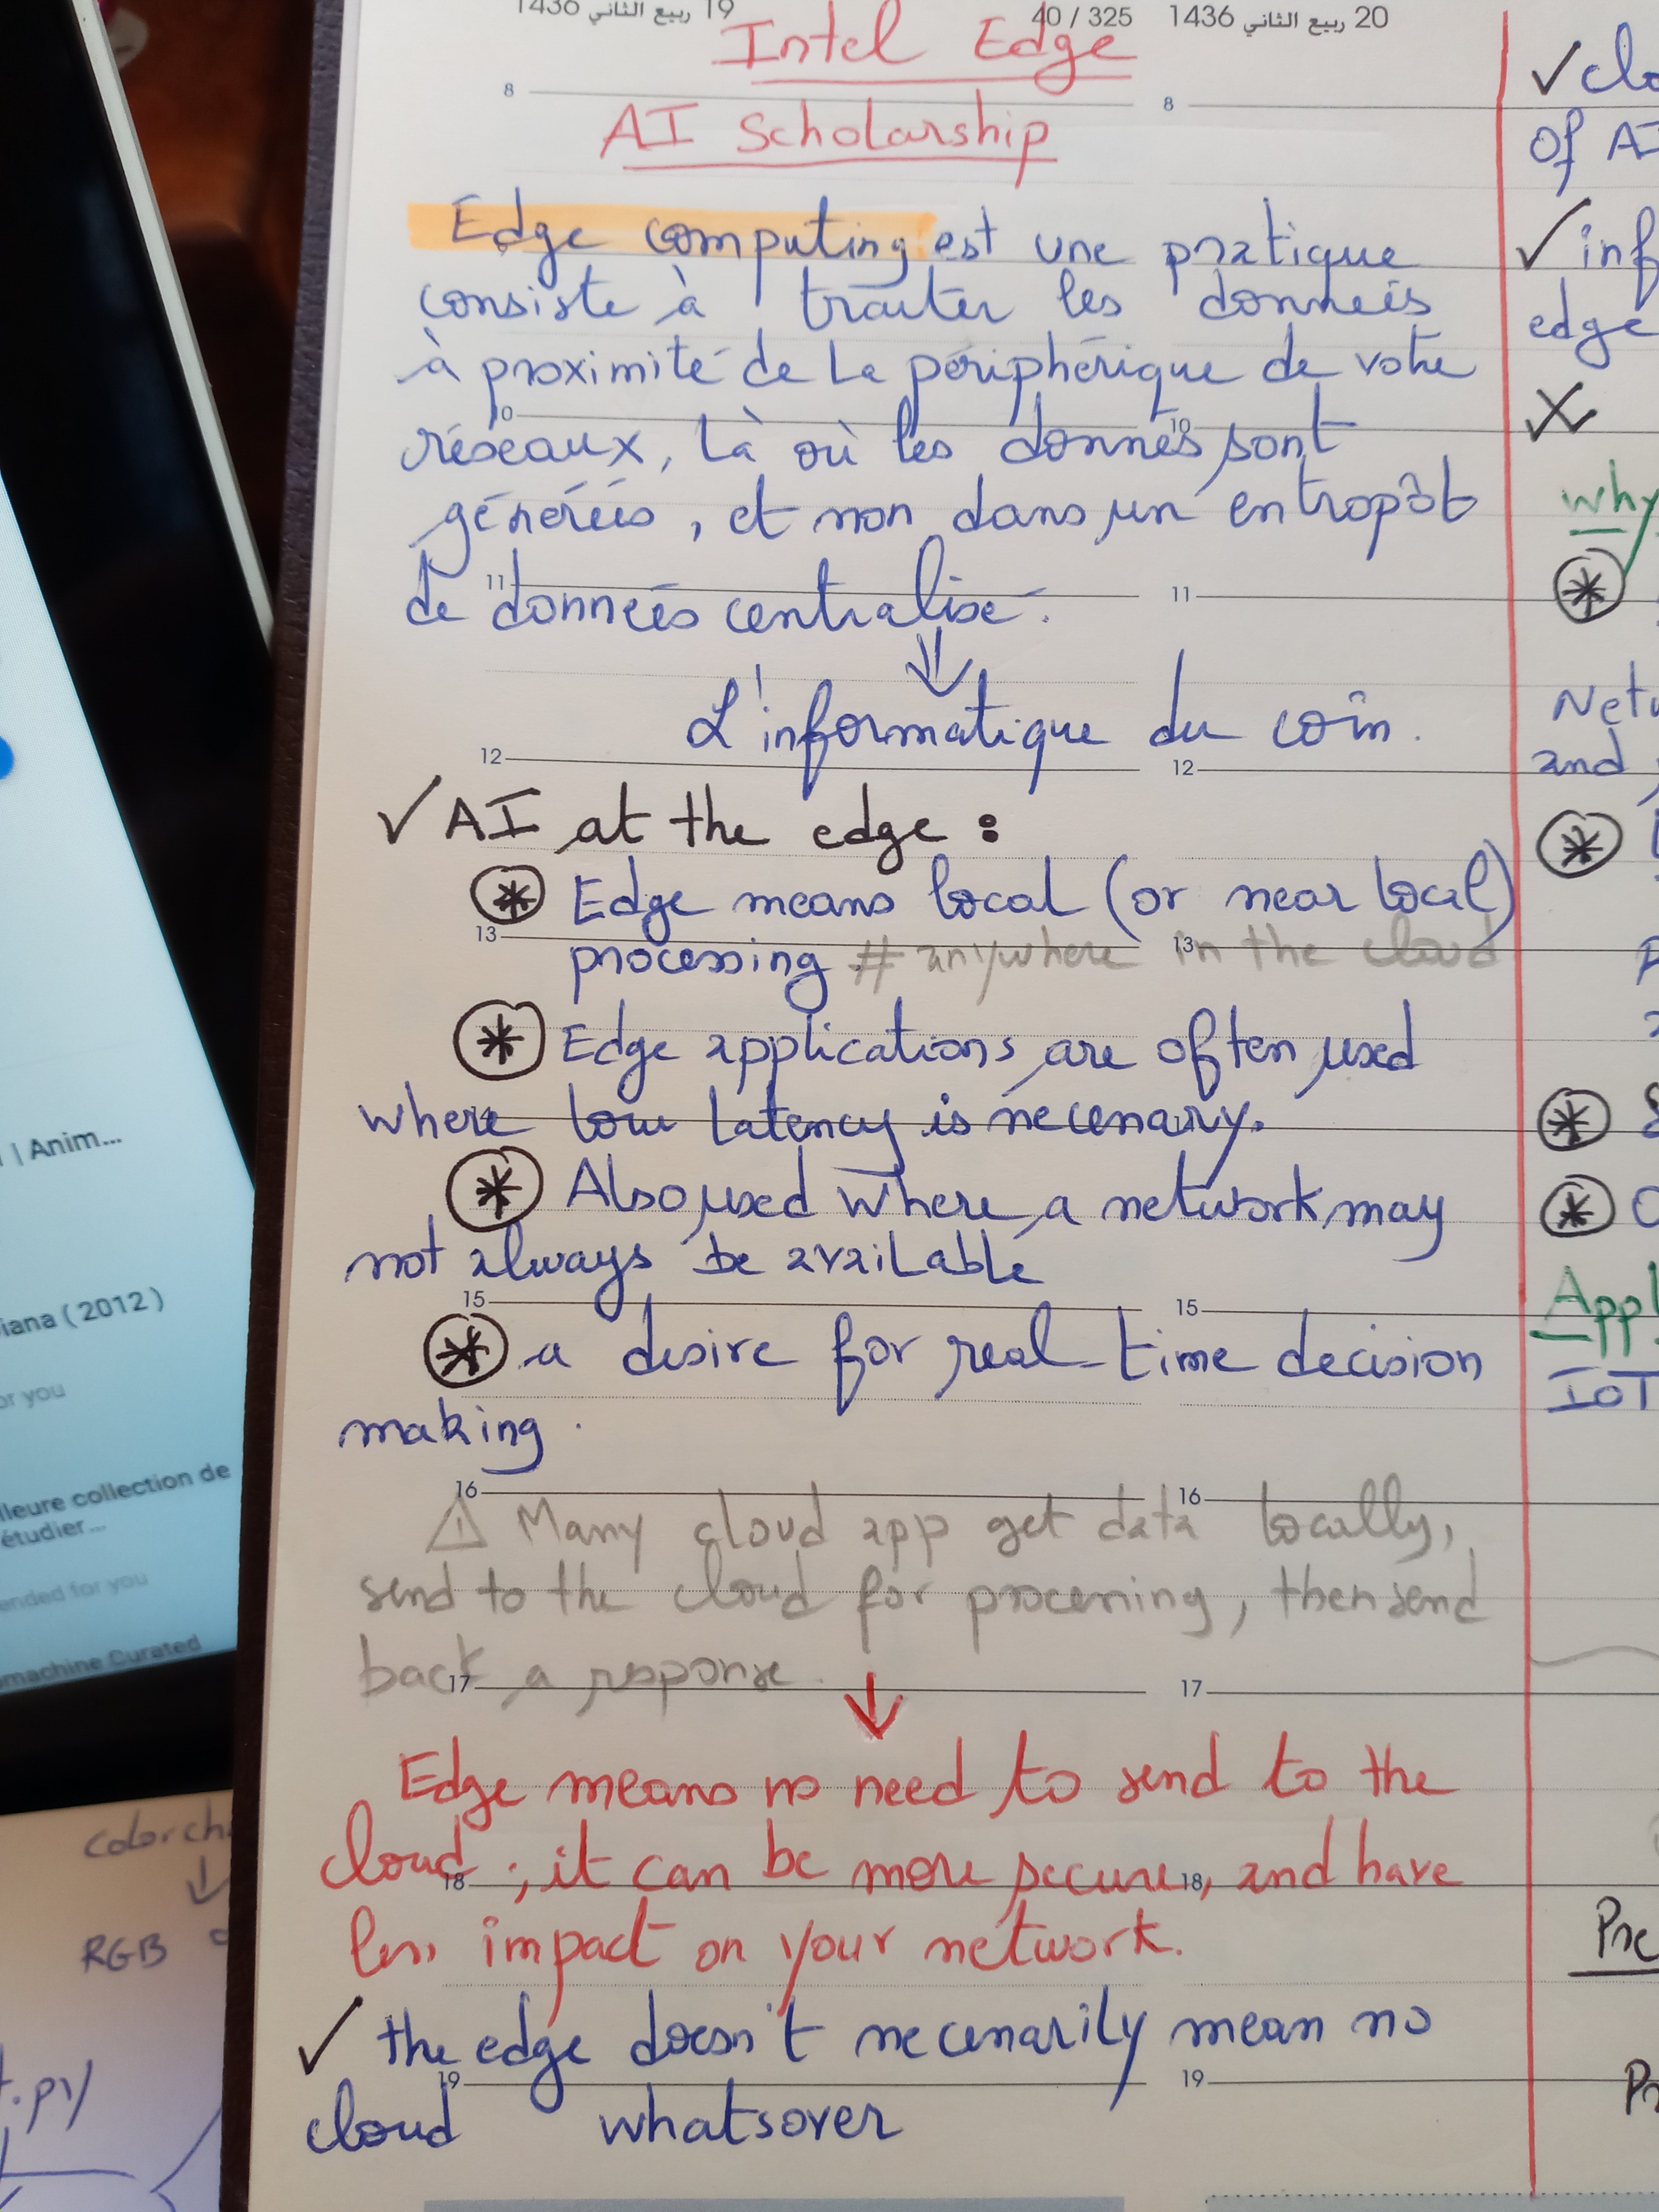 19 ربيع الثاني 1436
40 / 325
20 ربيع الثاني 1436
Intel Edge
8
8
AI Scholarship
Edge computing est une pratique
consiste à traiter les données
à proximité de la périphérique de votre
10
10
réseaux, là où les donnés sont
générées, et non dans un entropôt
11
11
de données centralisé.
↓
L'informatique du coin.
12
12
✓ AI at the edge :
⊛ Edge means local (or near local)
13
13
processing # anywhere in the cloud
⊛ Edge applications are often used
14
where low latency is necessary.
⊛ Also used where a network may
not always be available
15
15
⊛ a desire for real-time decision
making.
16
16
⚠ Many cloud app get data locally,
send to the cloud for processing, then send
back a response.
17
17
↓
Edge means no need to send to the
cloud; it can be more secure, and have
18
18
less impact on your network.
✓ the edge doesn't necessarily mean no
19
19
cloud whatsover
✓ clo
of AI
✓ inf
edge
X
Why
⊛
Netw
and
⊛
⊛
⊛
Appl
IoT
Pre
Pr
| Anim...
iana (2012)
or you
lleure collection de
étudier...
ended for you
machine Curated
Color ch
↓
RGB
t.py